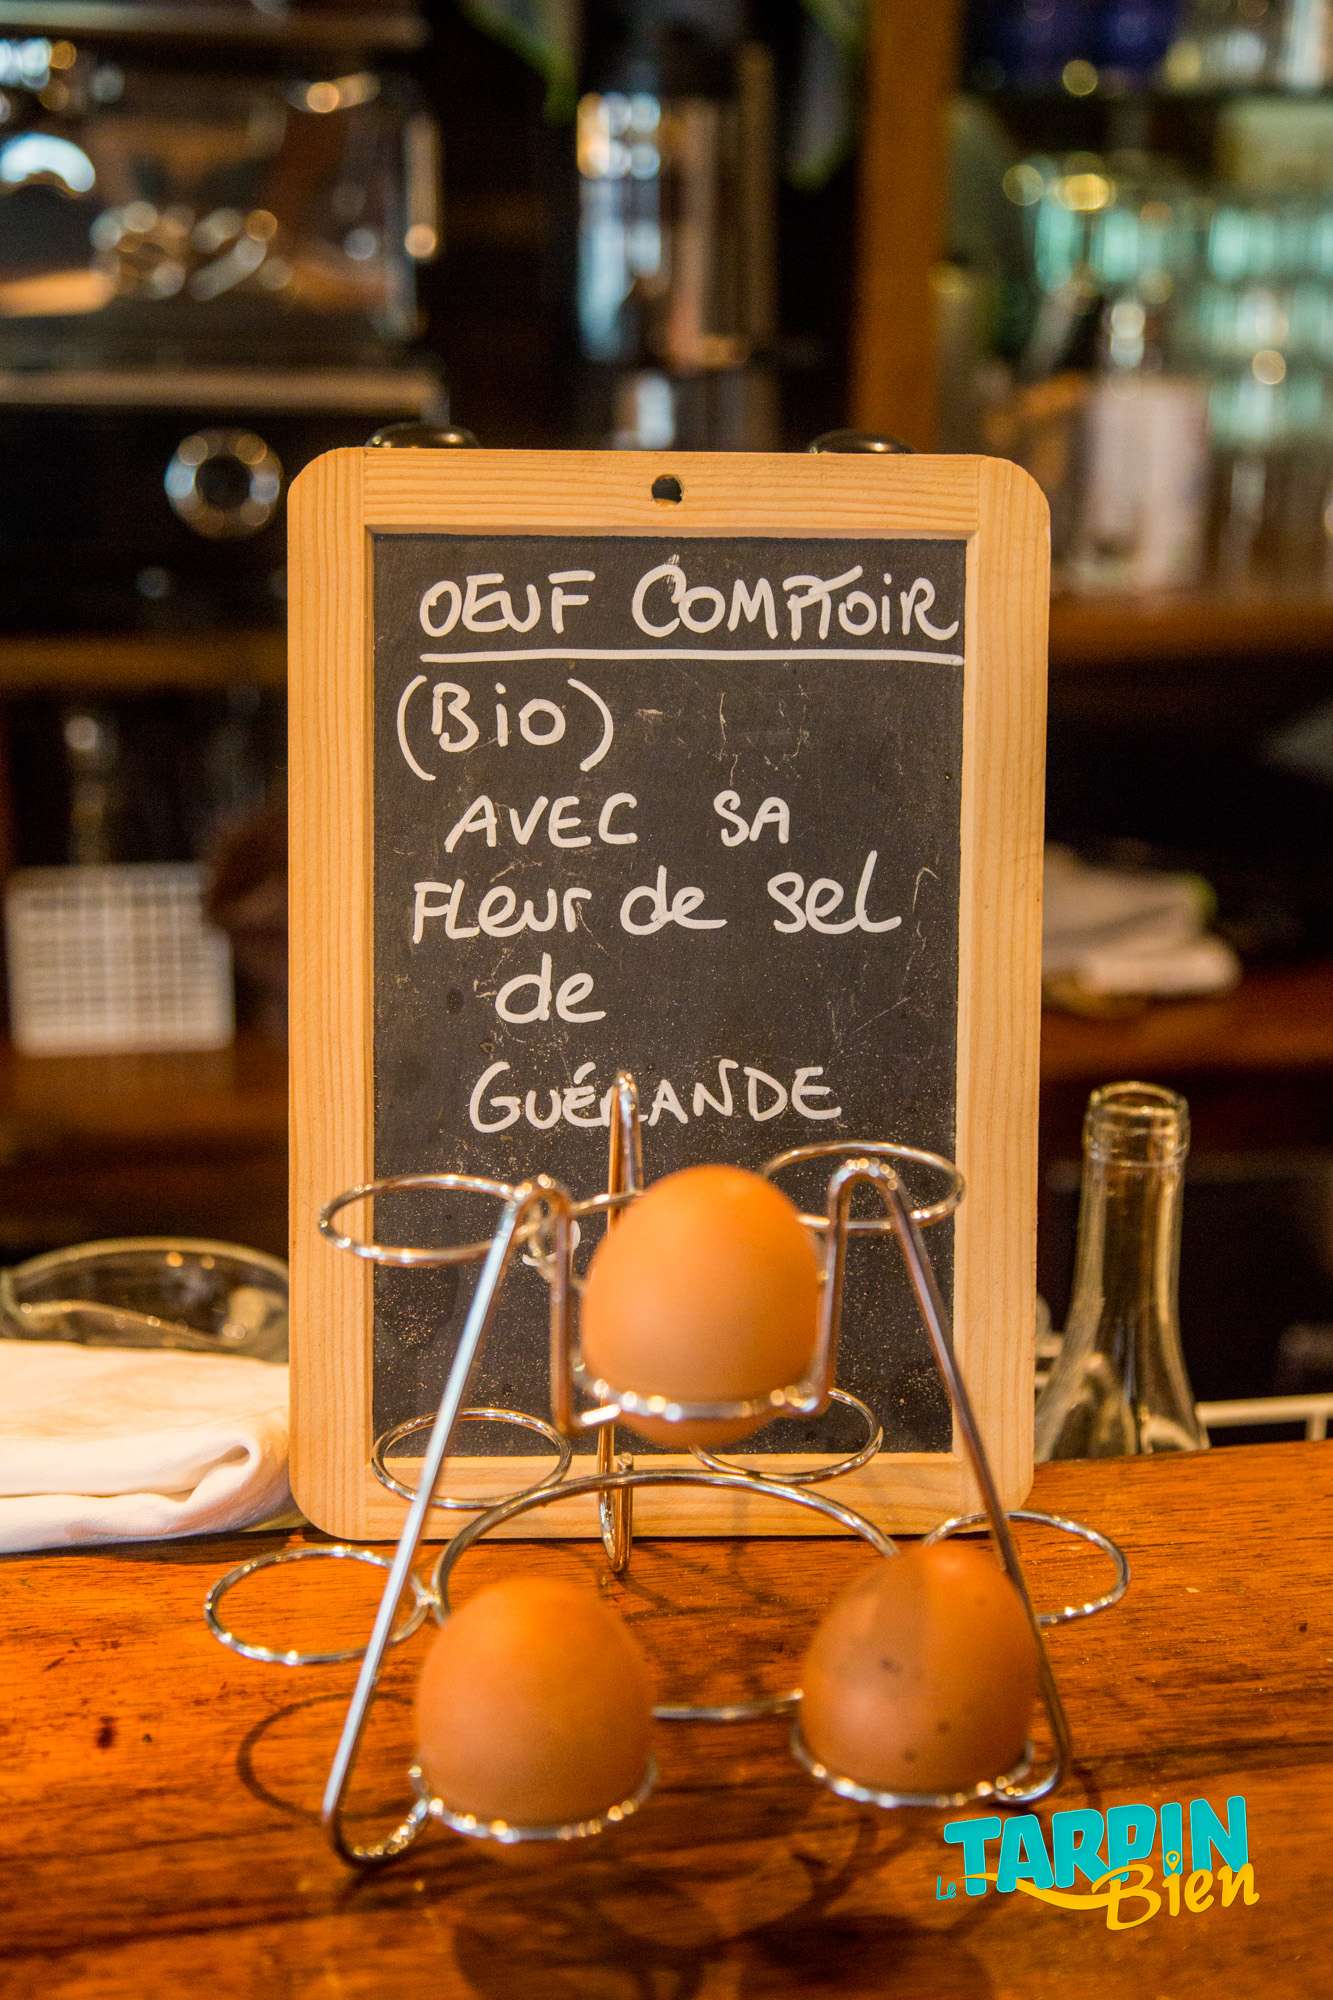 OEUF COMPTOIR
(Bio)
AVEC SA
FLeur de sel
de
GUÉRANDE
Le TARPIN
Bien